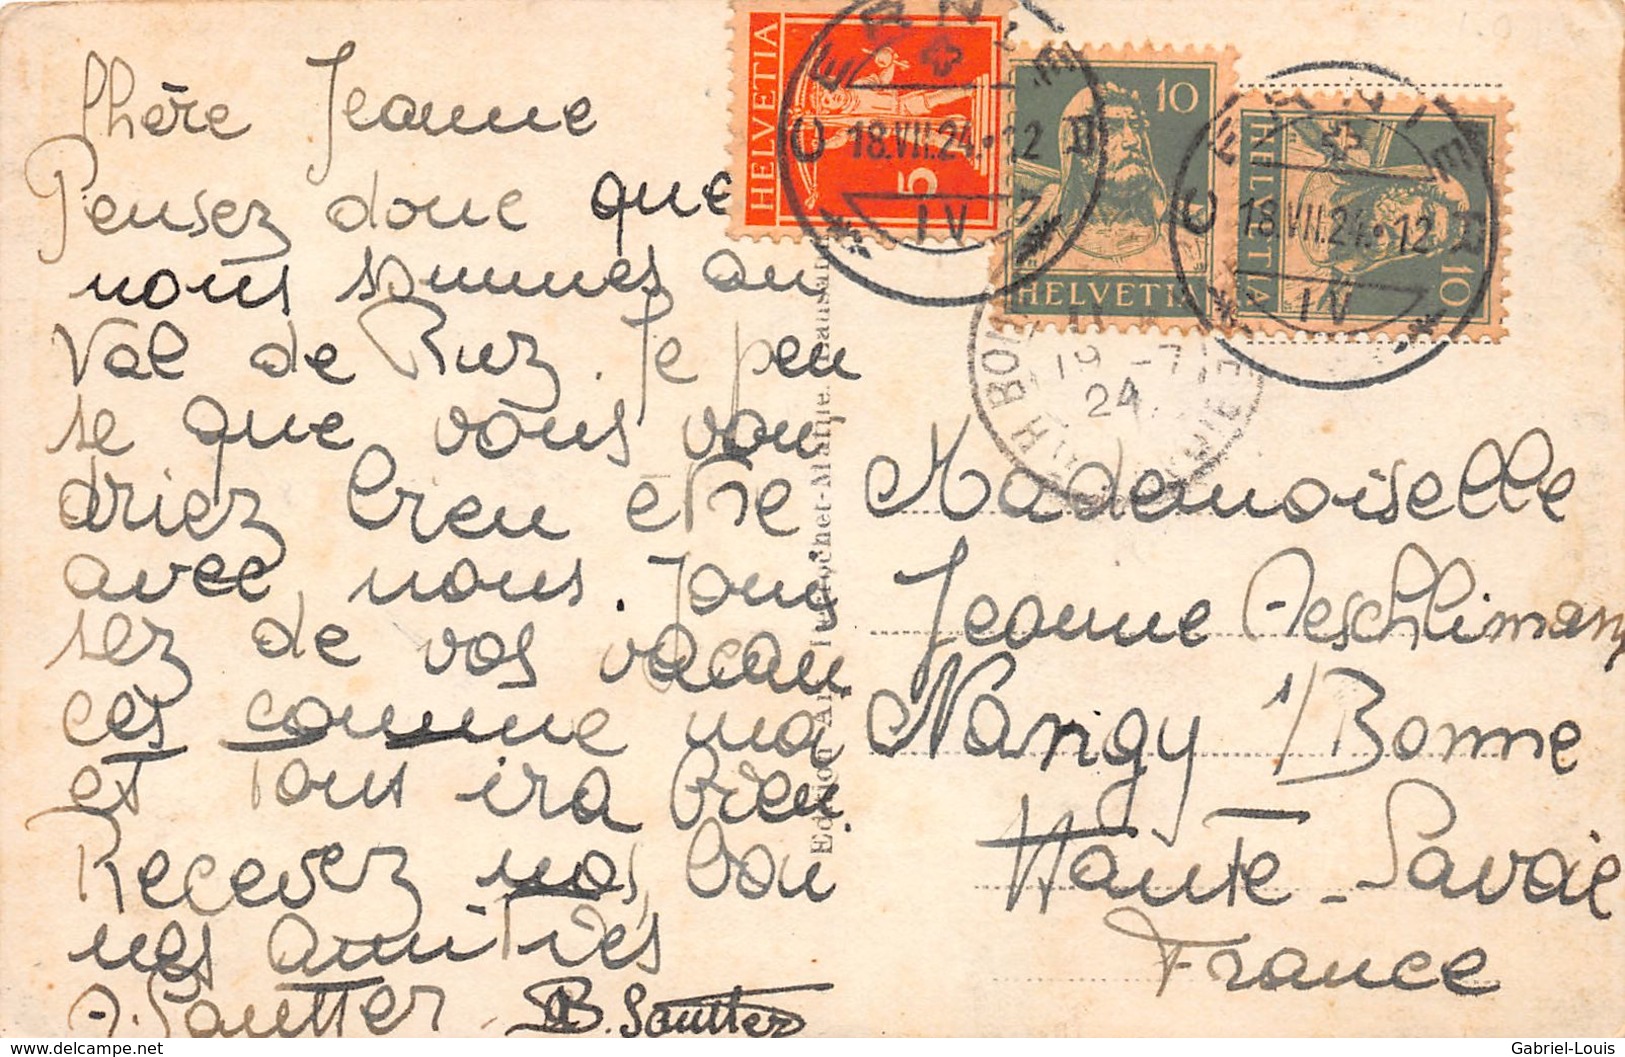 Chère Jeanne
Pensez donc que
nous sommes au
Val de Ruz. Je pen
se que vous vou
driez bien être
avec nous. Jouis
sez de vos vacan
ces comme moi
et tout ira bien
Recevez nos bon
nes amitiés
A. Sautter B. Sautter
HELVETIA 5
10 HELVETIA
HELVETIA 10
CERNIER
18.VII.24.-12
IV
CERNIER
18.VII.24.-12
IV
19 -7
24
Mademoiselle
Jeanne Aeschlimann
Nangy s/Bonne
Haute-Savoie
France
delcampe.net
Gabriel-Louis